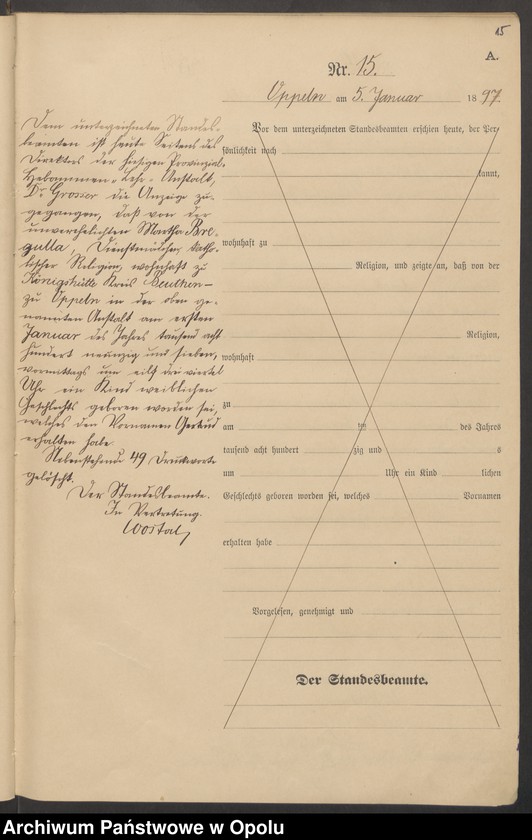 15
A.
Nr. 15.
Oppeln am 5. Januar 1897.
Dem unterzeichneten Standes-
beamten ist heute Seitens des
Direktors der hiesigen Provinzial-
Hebammen-Lehr-Anstalt,
Dr. Grosser die Anzeige zu-
gegangen, daß von der
unverehelichten Martha Bre-
gulla, Dienstmädchen, katho-
lischer Religion, wohnhaft zu
Königshütte Kreis Beuthen –
zu Oppeln in der oben ge-
nannten Anstalt am ersten
Januar des Jahres tausend acht
hundert neunzig und sieben,
vormittags um eilf dreiviertel
Uhr ein Kind weiblichen
Geschlechts geboren worden sei,
welches den Vornamen Gertrud
erhalten habe.
Nebenstehende 49 Druckworte
gelöscht.
Der Standesbeamte.
In Vertretung.
Wostal
Vor dem unterzeichneten Standesbeamten erschien heute, der Per-
sönlichkeit nach
kannt,
wohnhaft zu
Religion, und zeigte an, daß von der
Religion,
wohnhaft
zu
am ten des Jahrs
tausend acht hundert zig und s
um Uhr ein Kind lichen
Geschlechts geboren worden sei, welches Vornamen
erhalten habe
Vorgelesen, genehmigt und
Der Standesbeamte.
Archiwum Państwowe w Opolu